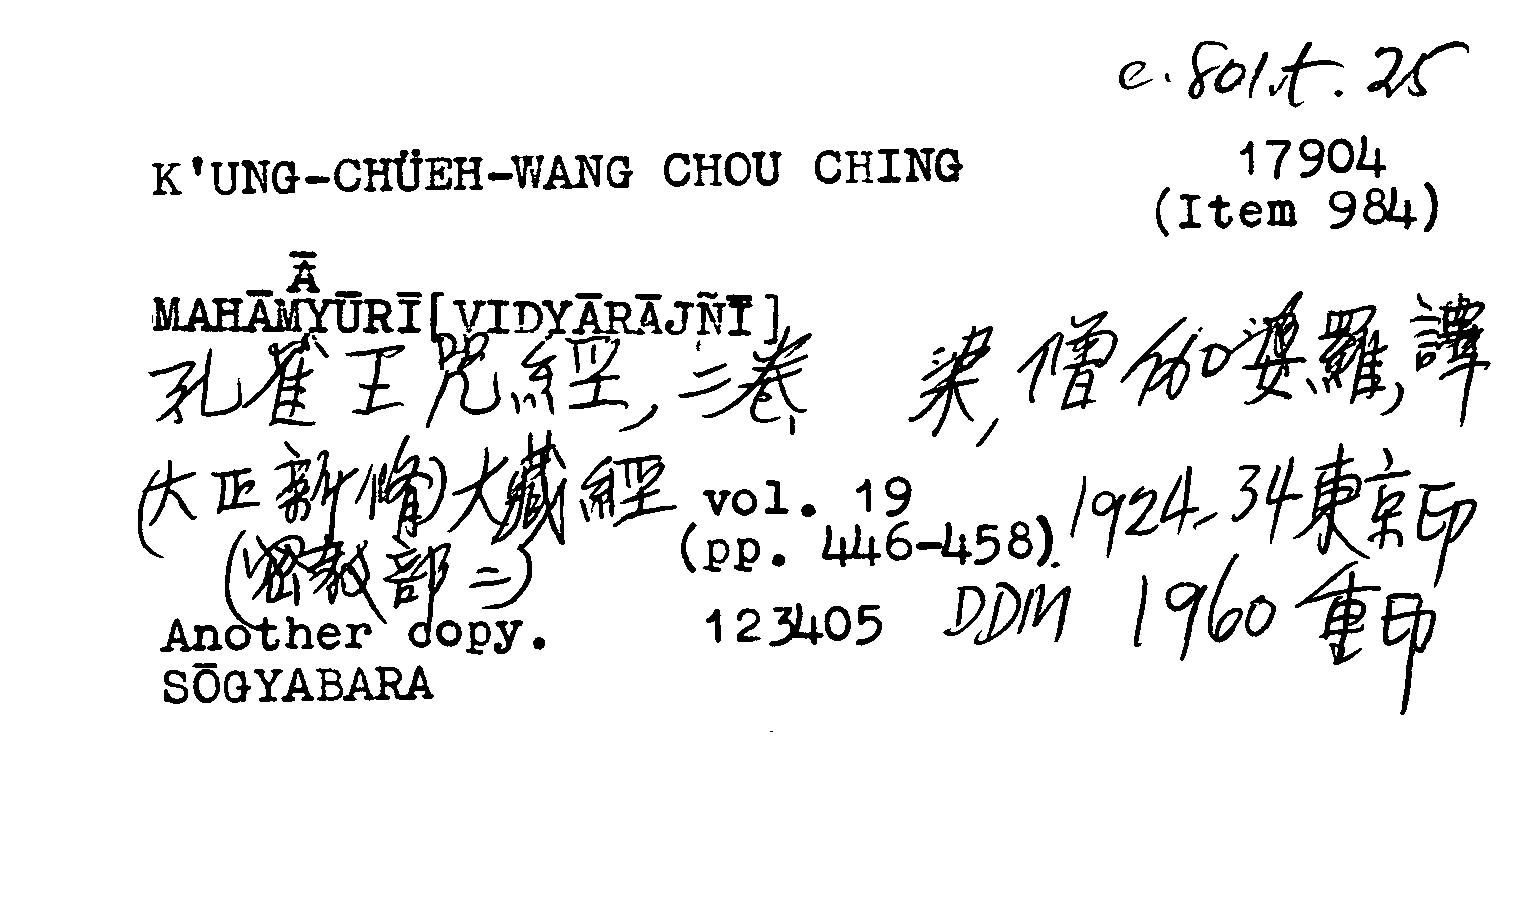 c. 801.t. 25
K'UNG-CHÜEH-WANG CHOU CHING 17904
(Item 984)
Ā
MAHĀMYŪRĪ[VIDYĀRĀJÑĪ]
孔雀王咒經, 二卷 梁, 僧伽婆羅, 譯
(大正新脩)大藏經 vol. 19 1924-34東京印
(密教部二) (pp. 446-458).
Another copy. 123405 DDM 1960重印
SŌGYABARA